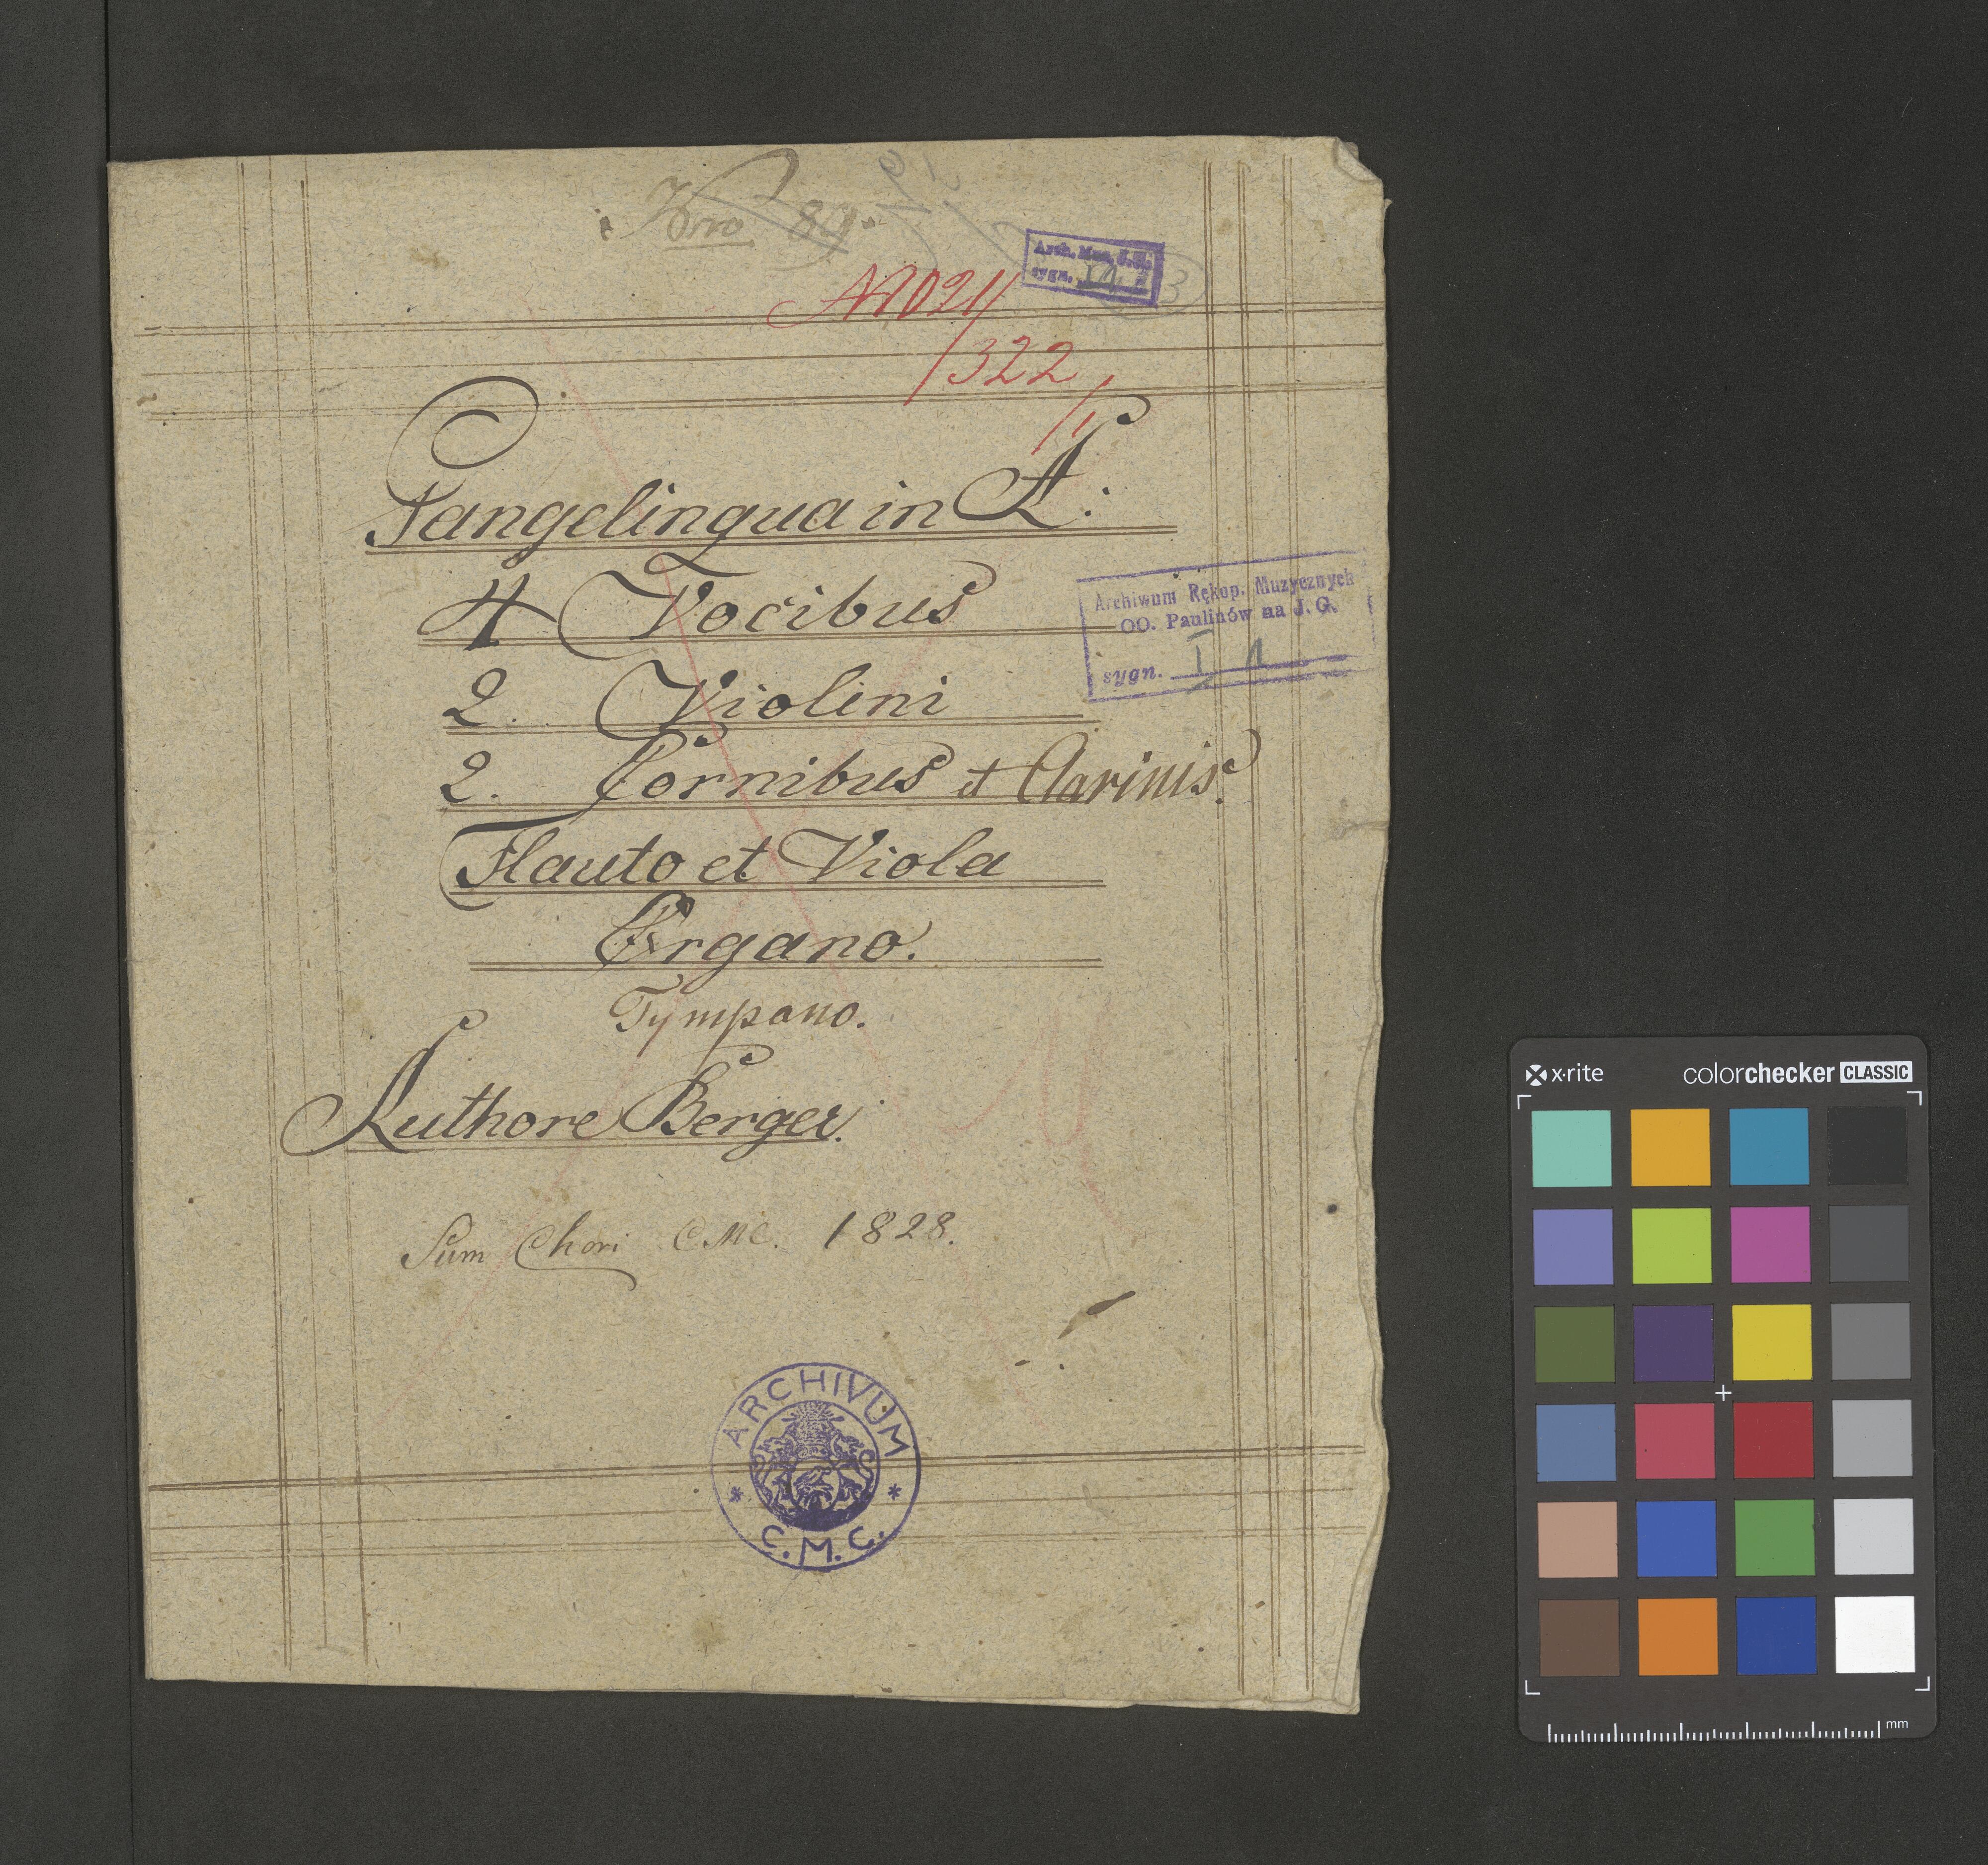 Nro 89.
Arch. Muz. J.G.
sygn. 
322
Pangelingua in A:
4 Vocibus
2. Violini
2. Cornibus et Clarinis.
Flauto et Viola
Organo.
Tympano.
Authore Berger.
Sum Chori C.M.C. 1828.
Archiwum Rękop. Muzycznych
OO. Paulinów na J. G.
sygn. I 1
ARCHIVUM
C. M. C.
x·rite colorchecker CLASSIC
mm